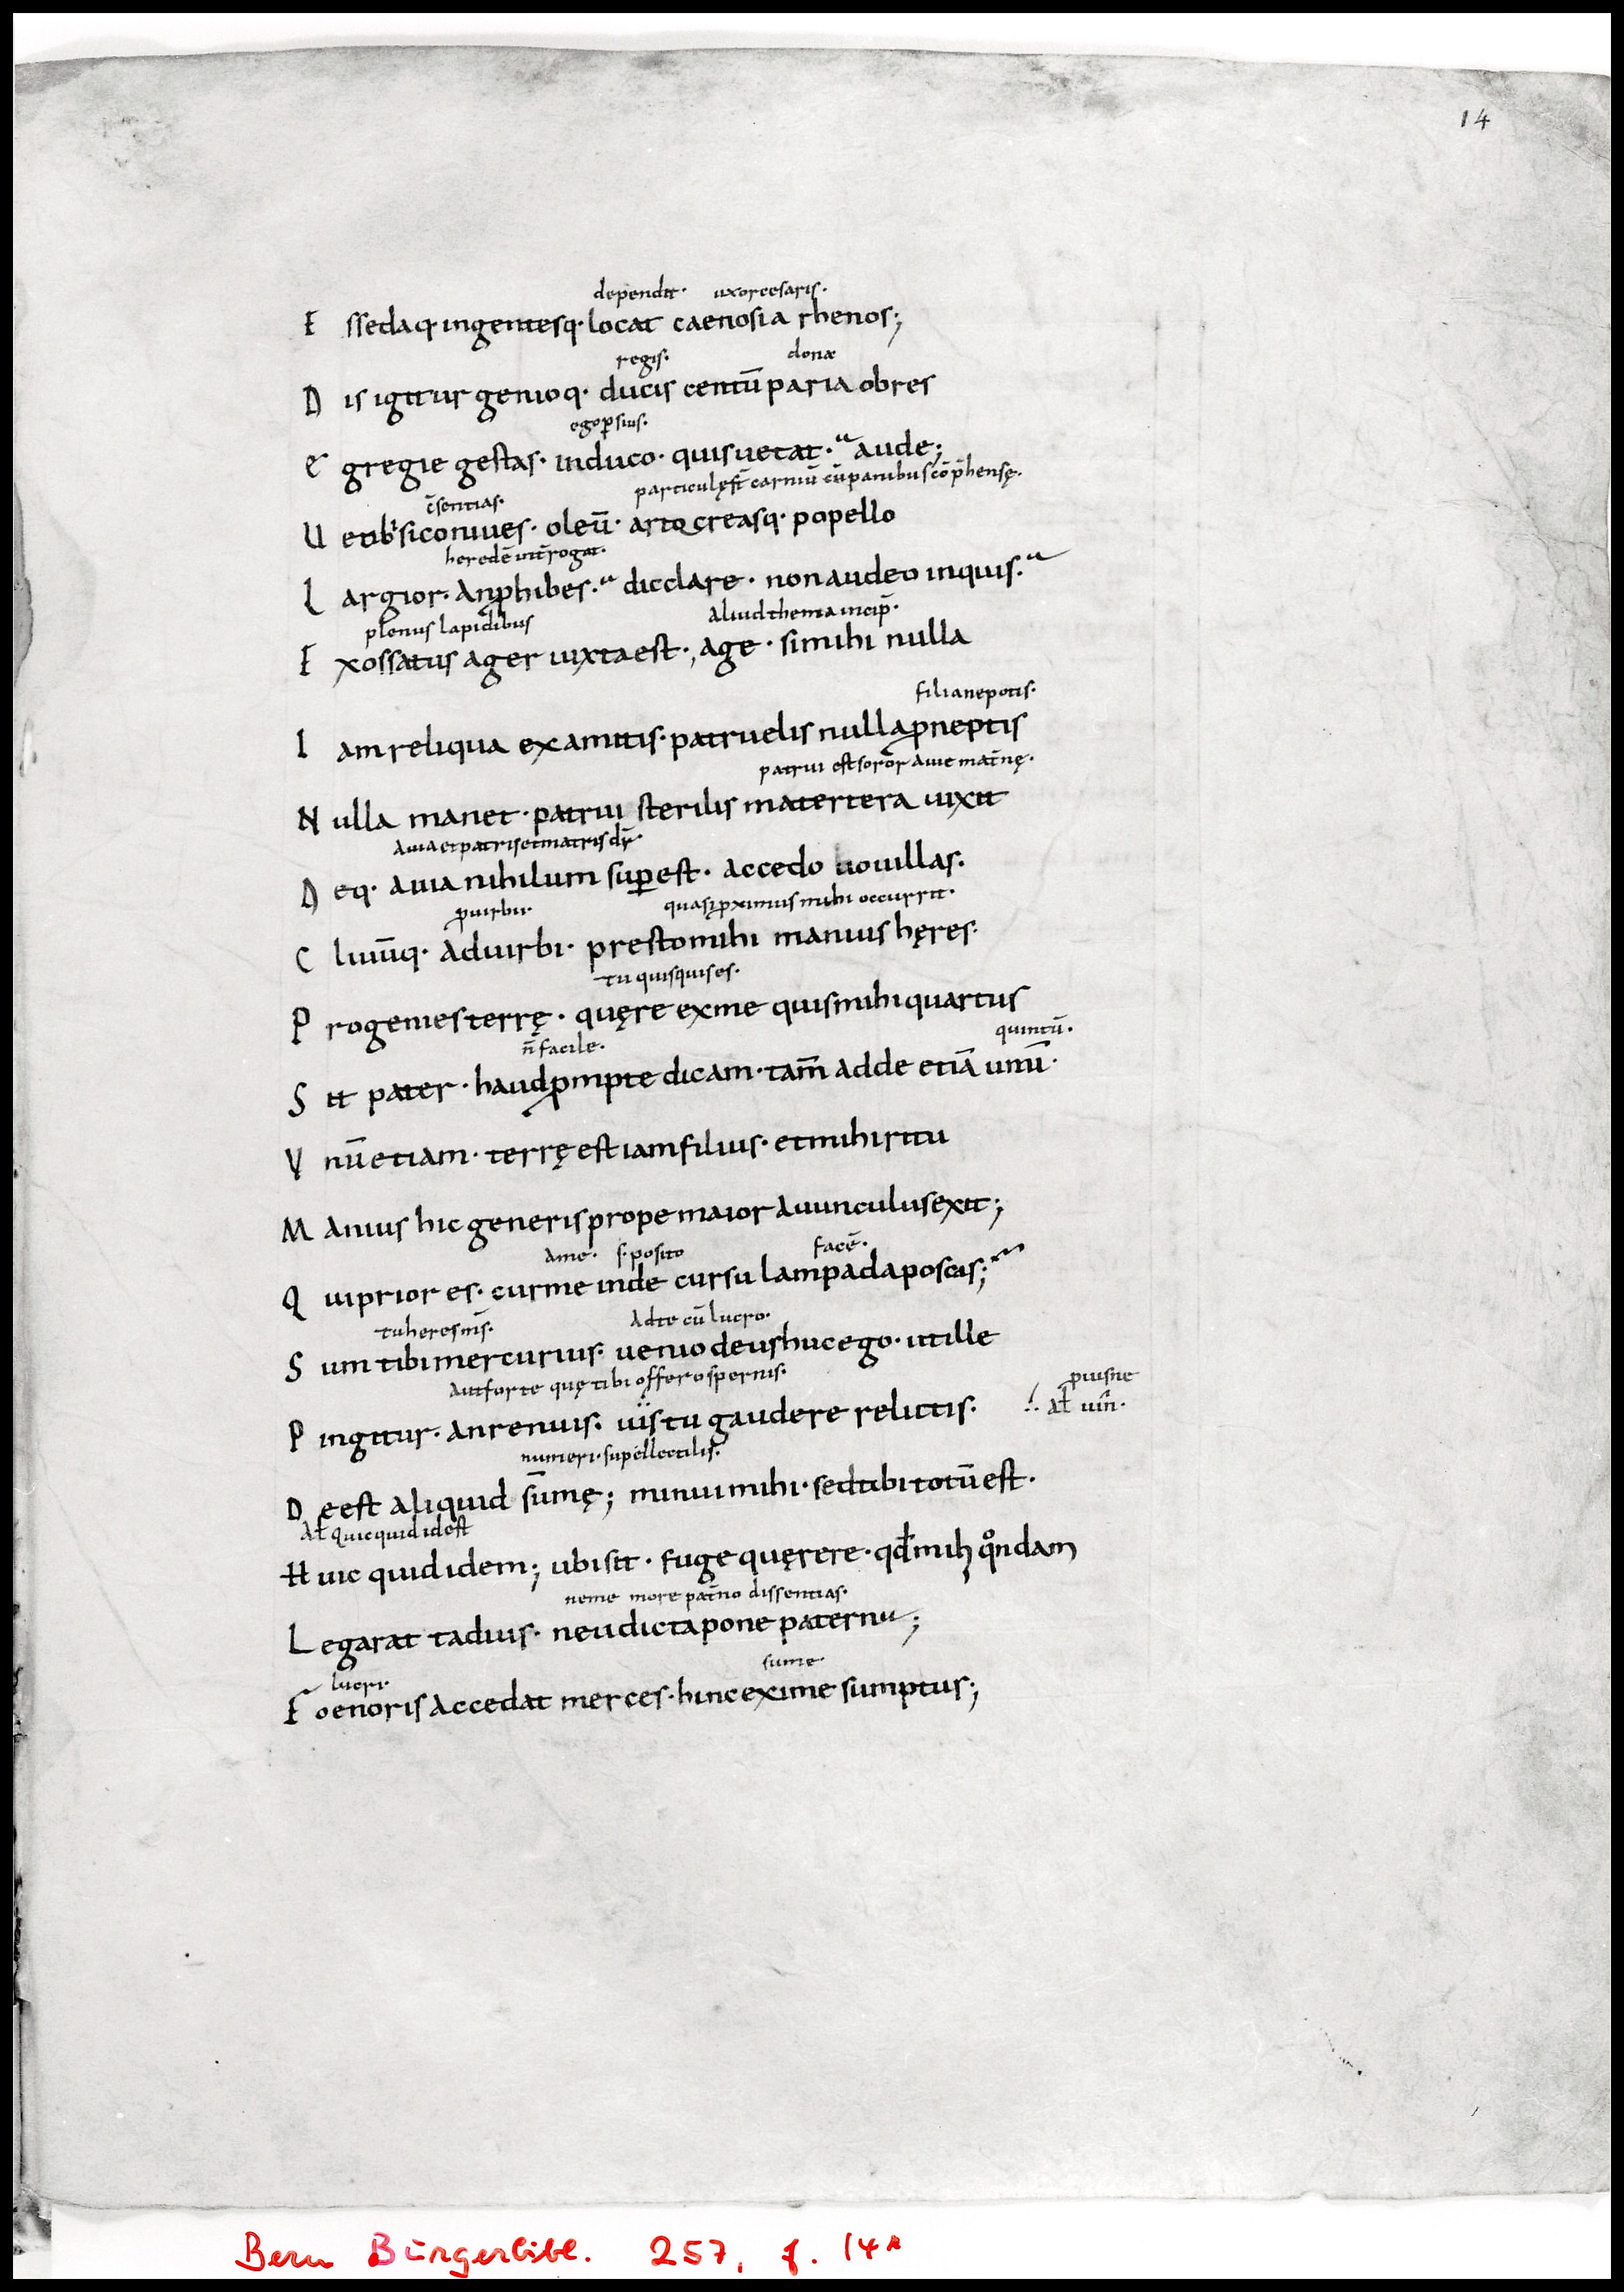 14
dependit· uxorcesaris·
E ssedaq· ingentesq· locat caenosia rhenos;
regis· donæ
D is igitur genioq· ducis centū paria obres
ego ꝑsius·
E gregie gestas· induco· quis uetat· aude;
c̄sentias· particulę s̄t carniū cū panibus cōp̄hensę·
U etib; siconiues· oleū· artocreasq· popello
heredē int̄rogat·
L argior· an ꝓhibes· dic clare· non audeo inquis·
plenus lapidibus Aliud thema incip̄·
E xossatus ager iuxta est·, age· si mihi nulla
filia nepotis·
I am reliqua ex amitis· patruelis nulla ꝓneptis
patrui est soror auie mat̄nę·
N ulla manet· patrui sterilis matertera uixit
Auia et patris et matris dr̄·
D eq· auia nihilum suꝑest· accedo bouillas·
ꝓ uirbii· quasi ꝓximus mihi occurrit·
C liuūq· ad uirbi· presto mihi manius hęres·
tu quisquis es·
P rogenies terrę· quęre ex me quis mihi quartus
n̄ facile· quintū·
S it pater· haud ꝓmpte dicam· tam̄ adde etiā unū·
V nū etiam· terrę est iam filius· et mihi ritu
M anius hic generis prope maior auunculus exit;
Ame· s· posito facē·
Q ui prior es· cur me inde cursu lampada poscis;
tu heres m̄s· Ad te cū lucro·
S um tibi mercurius· uenio deus huc ego· ut ille
Aut forte quę tibi offero spernis· ꝓ uisne
P ingitur· an renuis· uis tu gaudere relictis· ał uin·
numeri· supellectilis·
D eest aliquid sūmę; minui mihi· sed tibi totū est·
Ał quicquid id est
H uic quid idem; ubi sit· fuge quęrere· qd̄ mihi qondam
ne me more pat̄no dissentias·
L egarat tadius· neu dicta pone paternu;
lucri· sume·
F oenoris accedat merces· hinc exime sumptus;
Bern Bürgerbibl. 257, f. 14ʳ